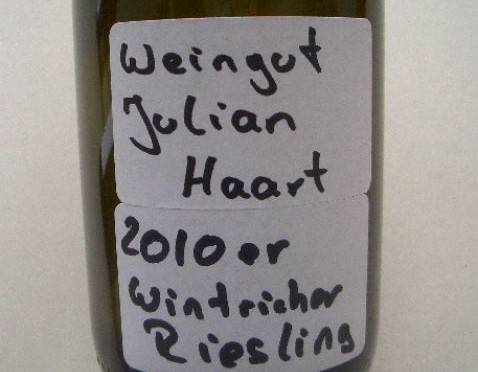 Weingut
Julian
Haart
2010er
Wintricher
Riesling